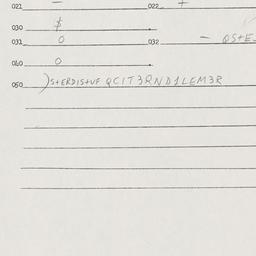 021 — 022 +
030 $ .
031 0 032 — QS+E-
040 0 .
050 )S+ERDIS+UF QCIT3RND1LEM3R